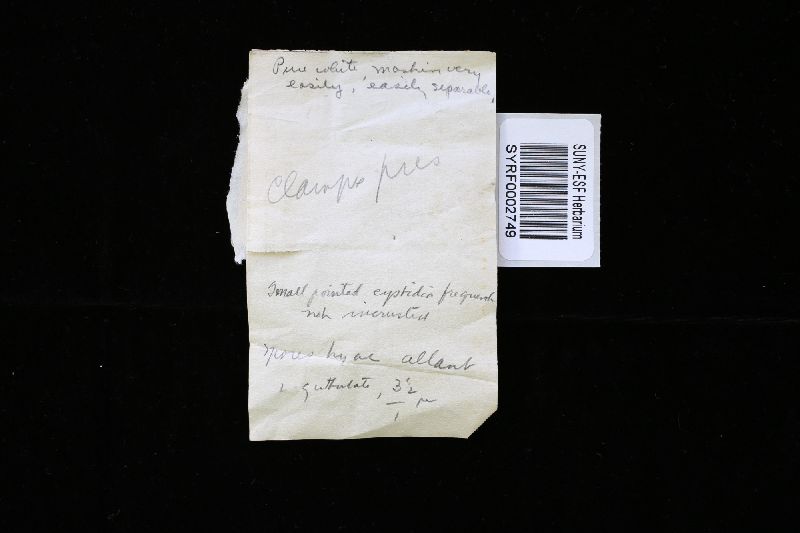 Pure white, very
easily, easily separable,
Clamps pres
Small pointed cystidia frequent
not incrusted
spores hyal allant
2 guttulate, 3½
1 μ
SUNY-ESF Herbarium
SYRF0002749